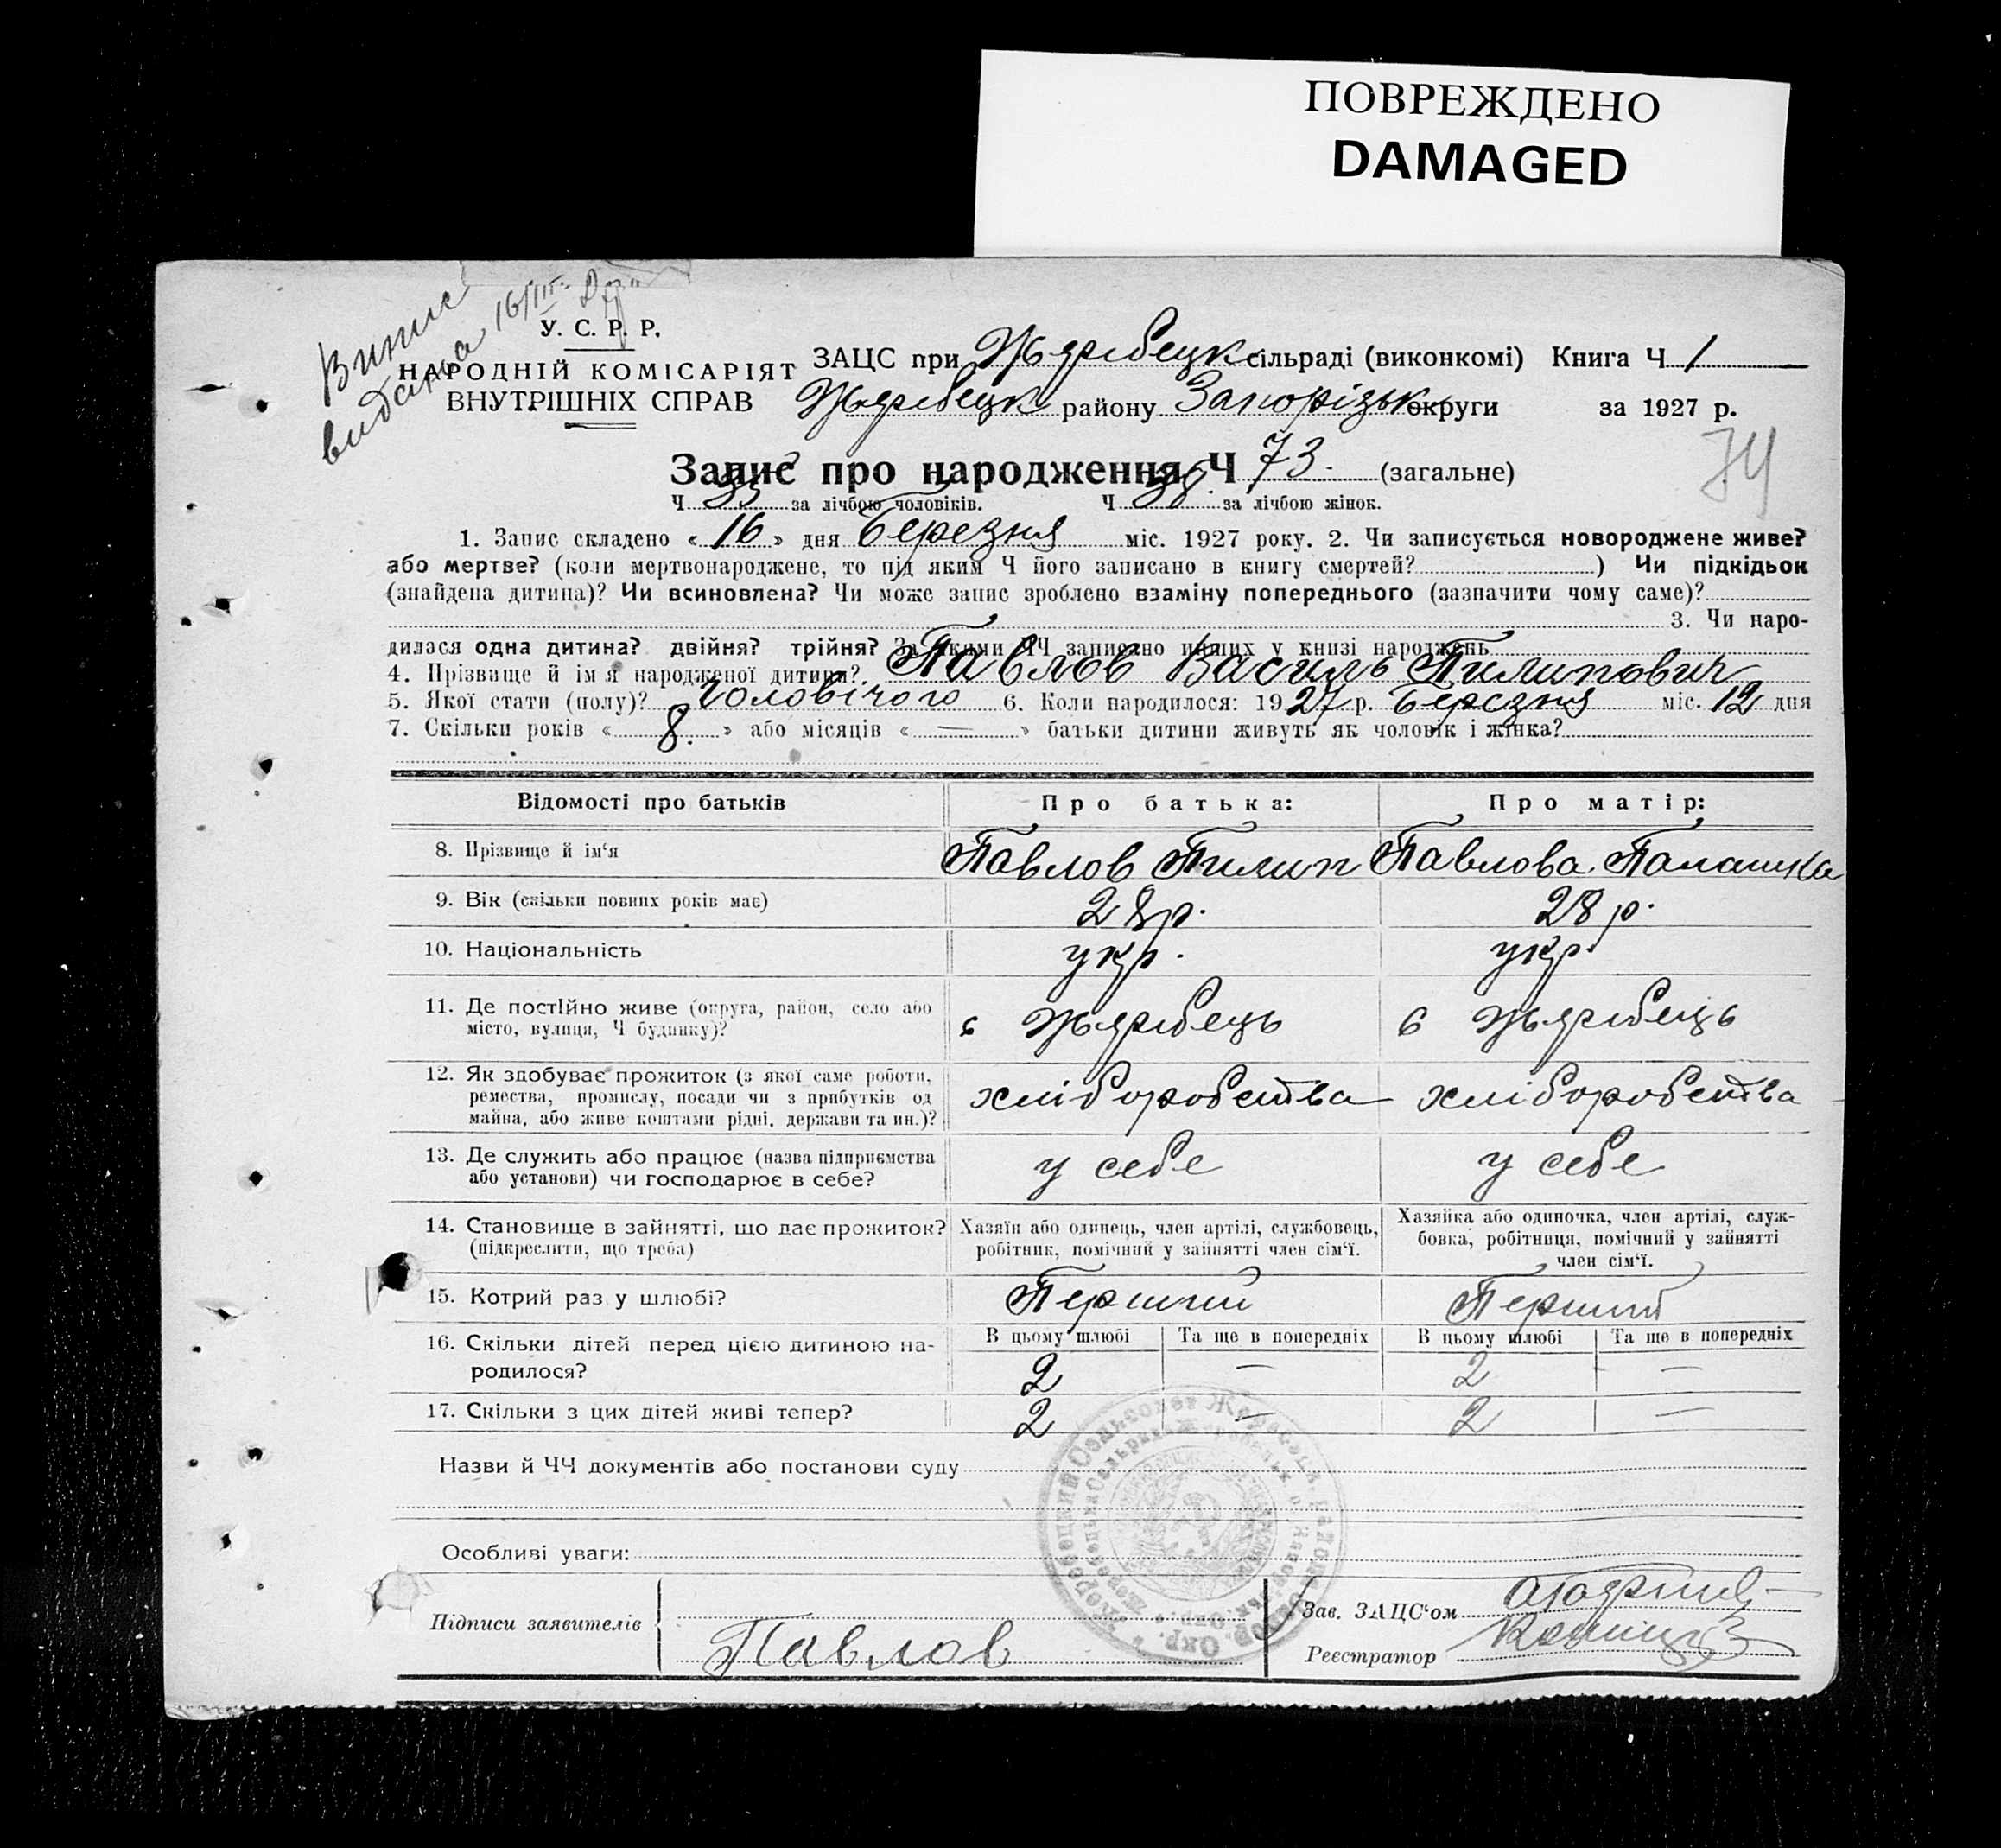 ПОВРЕЖДЕНО
DAMAGED
Випис
видана 16/III
У. С. Р. Р.
НАРОДНІЙ КОМІСАРІЯТ
ВНУТРІШНІХ СПРАВ
ЗАЦС при Жеребецк сільраді (виконкомі) Книга Ч 1
Жеребецк району Запорізьк округи за 1927 р.
74
Запис про народження Ч 73. (загальне)
Ч 35 за лічбою чоловіків. Ч 38. за лічбою жінок.
1. Запис складено « 16 » дня Березня міс. 1927 року. 2. Чи записується новороджене живе?
або мертве? (коли мертвонароджене, то під яким Ч його записано в книгу смертей? ) Чи підкідьок
(знайдена дитина)? Чи всиновлена? Чи може запис зроблено взаміну попереднього (зазначити чому саме)?
3. Чи наро-
дилася одна дитина? двійня? трійня? За якими ЧЧ записано инших у книзі народжень
4. Прізвище й ім'я народженої дитини? Павлов Василь Пилипович
5. Якої стати (полу)? Чоловічого 6. Коли народилося: 1927 р. Березня міс. 12 дня
7. Скільки років « 8. » або місяців « — » батьки дитини живуть як чоловік і жінка?
Відомості про батьків Про батька: Про матір:
8. Прізвище й ім'я Павлов Пилип Павлова Палашка
9. Вік (скільки повних років має) 28 р. 28 р.
10. Національність укр. укр.
11. Де постійно живе (округа, район, село або
місто, вулиця, Ч будинку)? с Жеребець с Жеребець
12. Як здобуває прожиток (з якої саме роботи,
ремества, промислу, посади чи з прибутків од
майна, або живе коштами рідні, держави та ин.)? хліборобства хліборобства
13. Де служить або працює (назва підприємства
або установи) чи господарює в себе? у себе у себе
14. Становище в зайнятті, що дає прожиток?
(підкреслити, що треба)
Хазяїн або одинець, член артілі, службовець,
робітник, помічний у зайнятті член сім'ї.
Хазяйка або одиночка, член артілі, служ-
бовка, робітниця, помічний у зайнятті
член сім'ї.
15. Котрий раз у шлюбі? Перший Перший
16. Скільки дітей перед цією дитиною на-
родилося?
В цьому шлюбі Та ще в попередніх В цьому шлюбі Та ще в попередніх
2 — 2 —
17. Скільки з цих дітей живі тепер? 2 — 2 —
Назви й ЧЧ документів або постанови суду
Особливі уваги:
Підписи заявителів Павлов
Зав. ЗАЦС'ом
Реєстратор